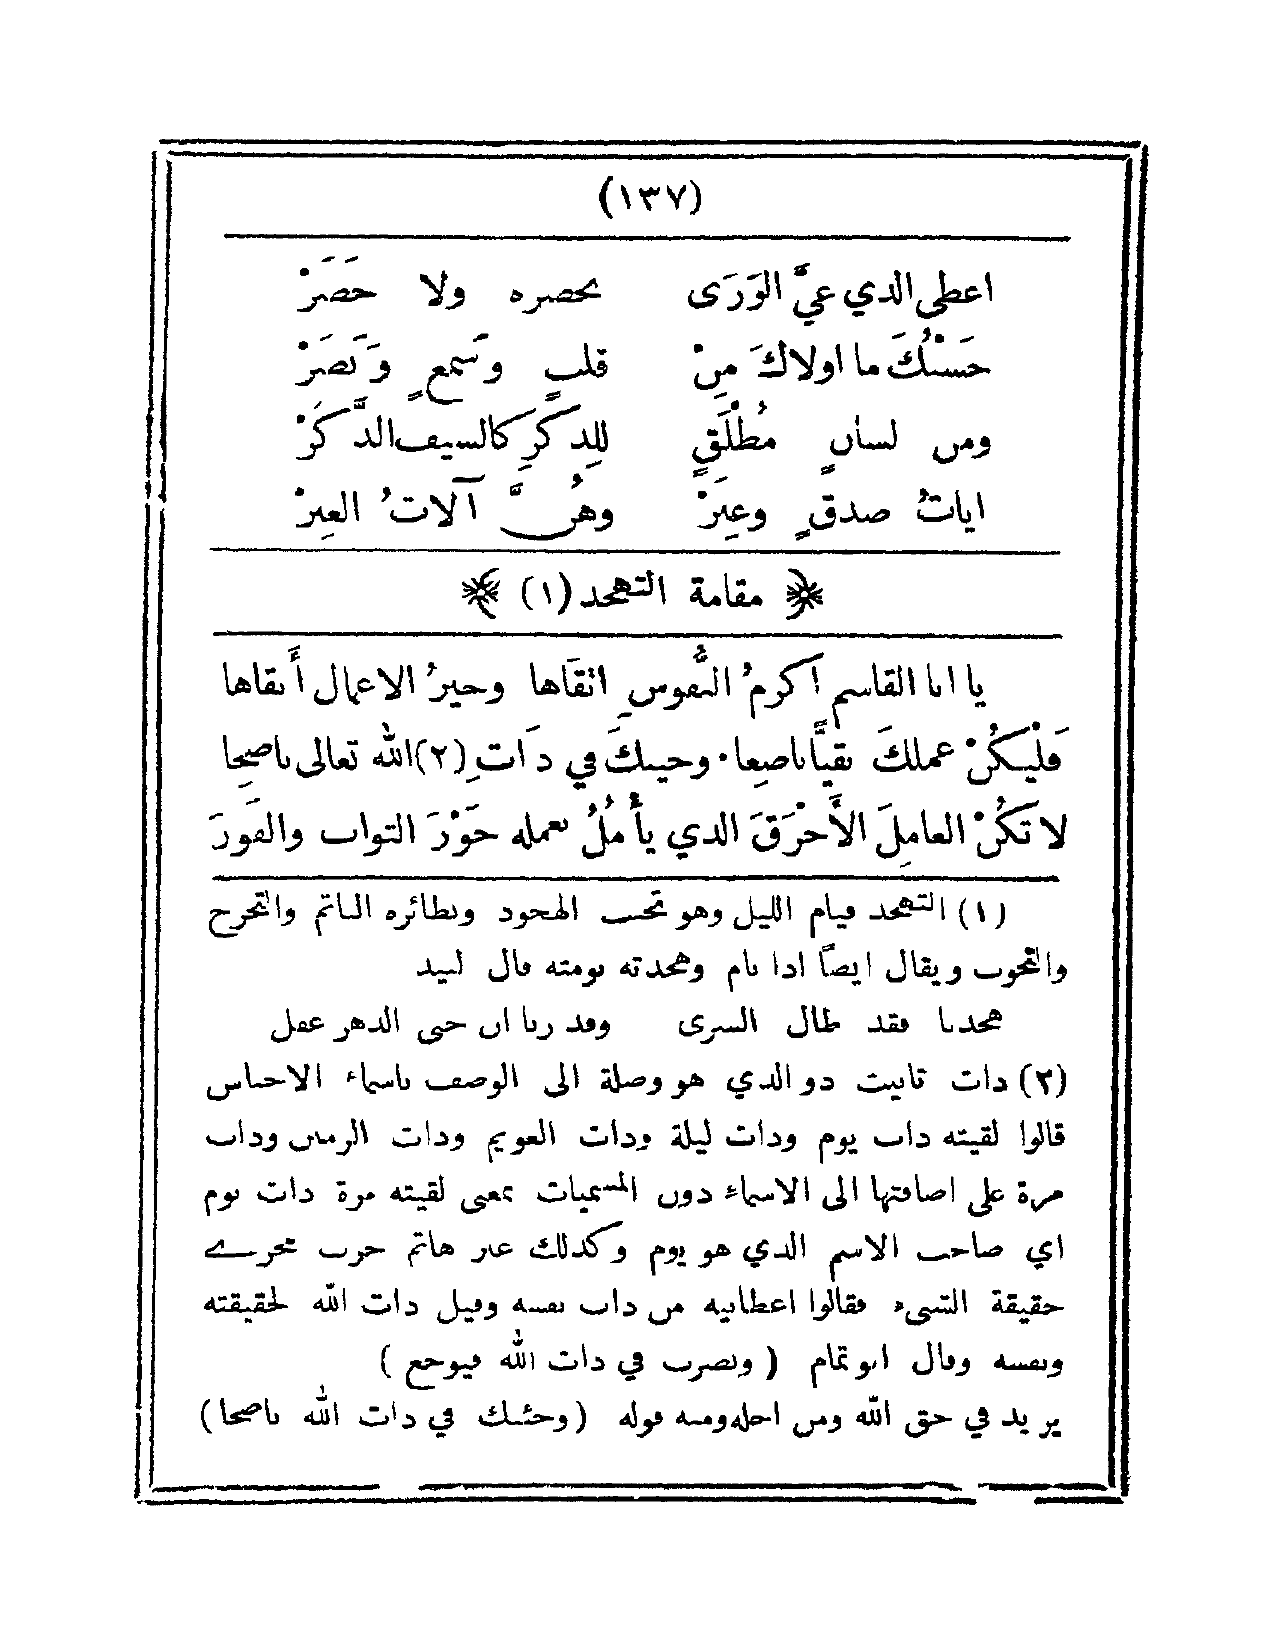 (١٣٧)
اعطى الذي عيَّ الوَرَى بحصره ولا حَصَرْ
حَسْبُكَ ما اولاكَ مِنْ قلبٍ وسَمعٍ وَبَصَرْ
ومن لسانٍ مُطْلَقٍ لِلذكرِ كالسيف الذَّكَرْ
اياتُ صدقٍ وعِبَرْ وهُنَّ آلاتُ العِبَرْ
مقامة التهجد (١)
يا ابا القاسم أكرمُ النُّفوسِ اتقَاها وخيرُ الاعمال أَنقاها
فَلْيَكُنْ عملكَ نقيًّا ناصعا. وجيبكَ في ذَاتِ (٢) الله تعالى ناصحا
لا تَكُنْ العامِلَ الأَخْرَقَ الذي يأْمُلُ بعمله حَوْزَ الثواب والفوزَ
(١) التهجد قيام الليل وهو تجنب الهجود ونظائره التاثم والتحرج
والتحوب ويقال ايضاً اذا نام وهجدته نومته قال لبيد
هجدنا فقد طال السرى وقد رنا ان خنى الدهر غفل
(٢) ذات تانيث ذو الذي هو وصلة الى الوصف باسماء الاجناس
قالوا لقيته ذات يوم وذات ليلة وذات العويم وذات الزمين وذات
مرة على اضافتها الى الاسماء دون المسميات بمعنى لقيته مرة ذات يوم
اي صاحب الاسم الذي هو يوم وكذلك
حقيقة الشيء فقالوا اعطانيه من ذات نفسه وقيل ذات الله لحقيقته
ونفسه وقال ابو تمام (ويضرب في ذات الله فيوجع)
يريد في حق الله ومن اجله ومنه قوله (وجئتك في ذات الله ناصحا)